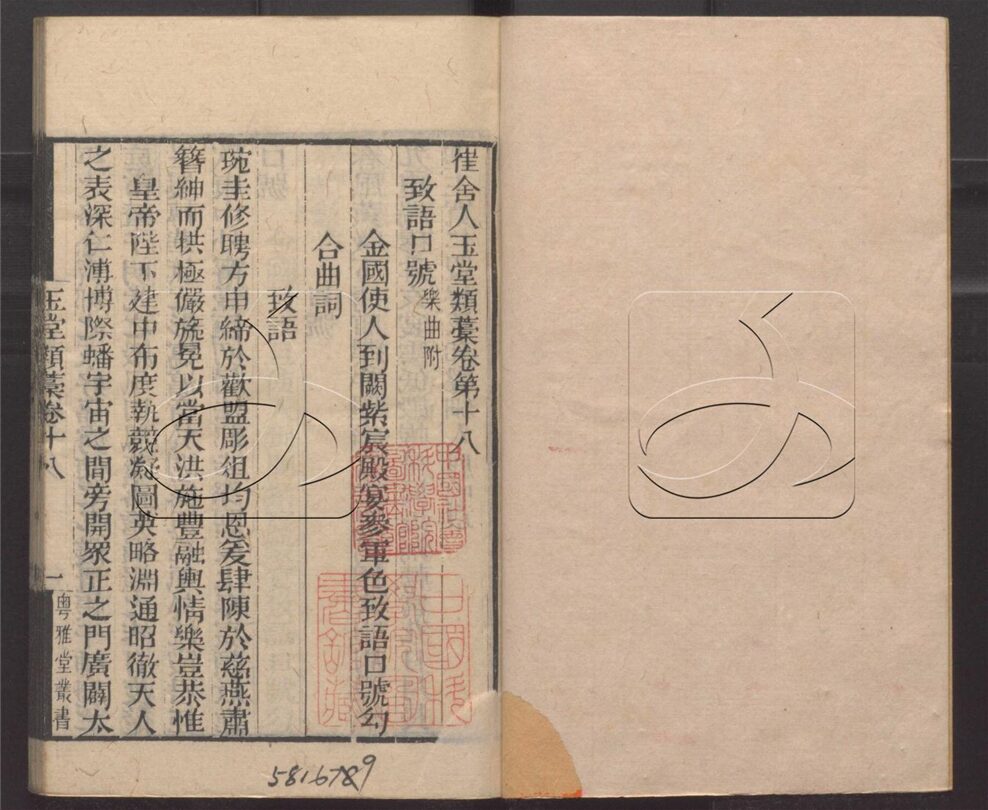 崔舍人玉堂類藁卷第十八
致語口號樂曲附
金國使人到闕紫宸殿宴參軍色致語口號勾
合曲詞
致語
琬圭修聘方申締於歡盟彫俎均恩爰肆陳於慈燕肅
簪紳而拱極儼旒冕以當天洪施豐融輿情樂豈恭惟
皇帝陛下建中布度執競凝圖英略淵通昭徹天人
之表深仁溥博際蟠宇宙之間旁開眾正之門廣闢太
玉堂類藁卷十八
一
粵雅堂叢書
5816789